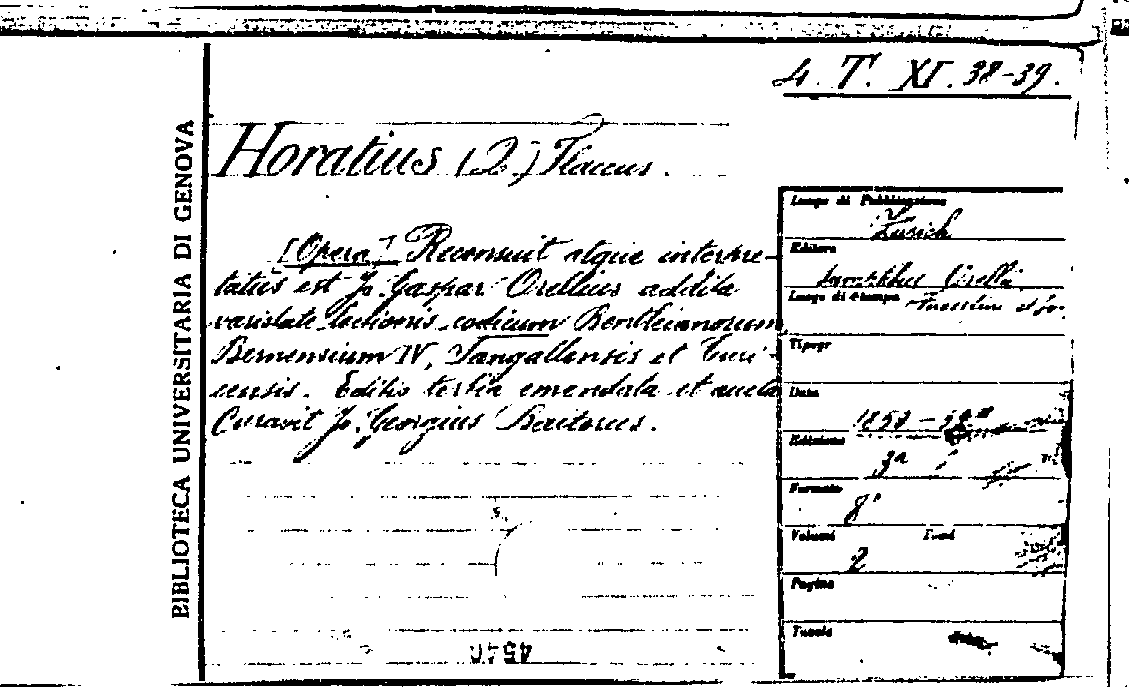 4. T. XI. 38-39.
BIBLIOTECA UNIVERSITARIA DI GENOVA
Horatius (Q.) Flaccus.
[Opera] Recensuit atque interpre-
tatus est Jo. Gaspar Orellius addita
varietate lectionis codicum Bentleianorum,
Bernensium IV, Sangallensis et Turi-
censis. Editio tertia emendata et aucta
Curavit Jo. Georgius Baiterus.
Luogo di Pubblicazione
Zurich
Editore
Orelli
Luogo di stampa
Fuesslin
Tipogr
Data
Edizione
3ª
Formato
8°
Volumi
2
Pagine
Tavole
4540